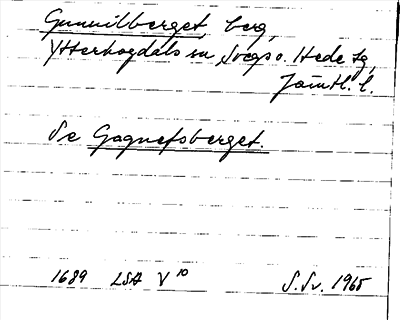 Gunnilberget, berg,
Ytterhogdals sn Svegs o. Hede tg,
Jämtl. l.
Se Gagnefsberget.
1689 LSA V 10 S.Sv. 1965